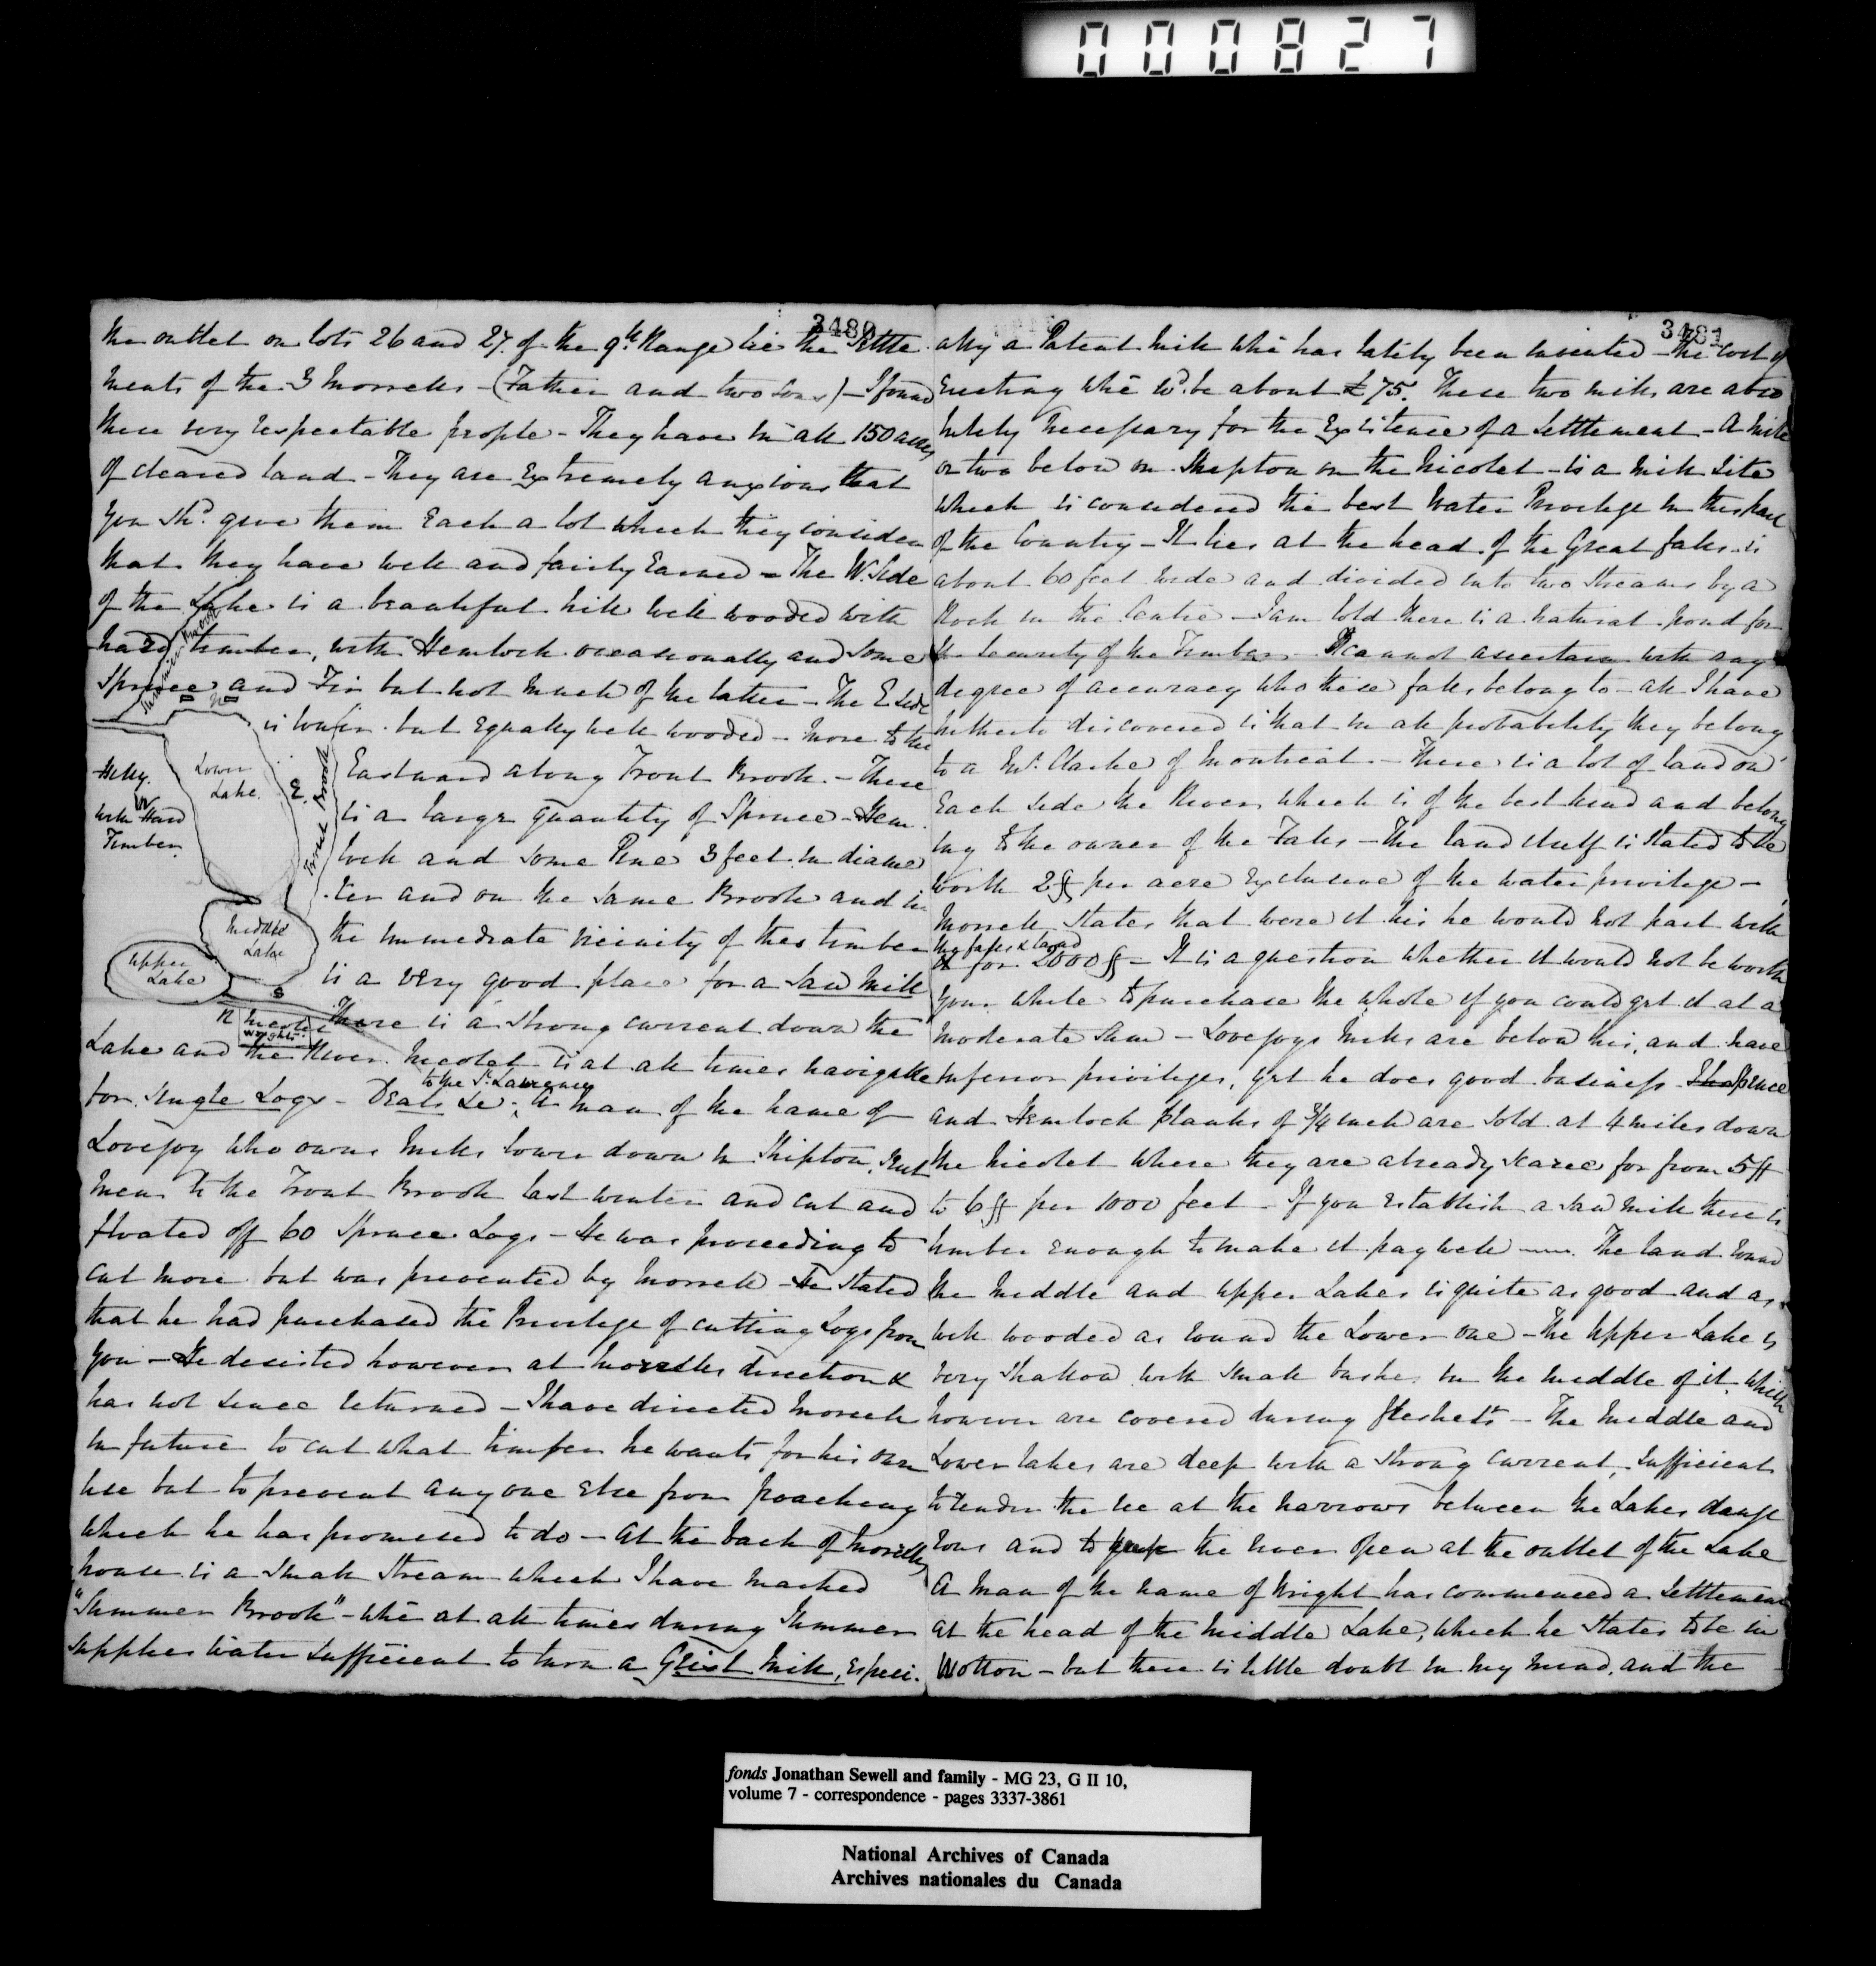 000827
3480
the outlet on lots 26 and 27. of the 9th Range lie the Settle
ments of the 3 Morrells - (Father and two Sons) - I found
these very respectable people - They have in all 150 acres
of cleared land - They are Extremely anxious that
you shd. give them Each a lot which they consider
that they have well and fairly Earned - The W. Side
of the Lake is a beautiful hill well wooded with
hard timber, with Hemlock occasionally and some
Spruce and Fir but not much of the latter - The E side
is lower but Equally well wooded - More to the
Eastward along Trout Brook - There
is a large quantity of Spruce - Hem
lock and some Pine 3 feet in diame
ter and on the same Brook and in
the immediate vicinity of this timber
is a very good place for a Saw Mill
There is a strong current down the
Lake and the River Nicolet is at all times navigable
to the St. Lawrence
for Single Logs - Deals &c; A man of the name of
Lovejoy who owns Mills lower down in Shipton, sent
men to the Trout Brook last winter and cut and
floated off 60 Spruce Logs - He was proceeding to
cut more but was prevented by Morrell - He stated
that he had purchased the Privilege of cutting Logs from
you - He desisted however at Morrells direction &
has not since returned - I have directed Morrell
in future to cut what timber he wants for his own
use but to prevent any one Else from poaching
which he has promised to do - At the back of Morrells
house is a small Stream which I have marked
"Summer Brook" - whē at all times during Summer
supplies water sufficient to turn a Grist Mill, Especi.
Summer Brook
Hilly.
W
with Hard
Timber.
Lower
Lake.
E.
Trout Brook
Middle
Lake
Upper
Lake
S
R Nicolet
Wrights
3481
ally a Patent Mill whē has lately been invented - the cost of
Erecting whē wd. be about £75. These two mills are abso
lutely necessary for the Existence of a Settlement - A mile
or two below in Shipton on the Nicolet - is a Mill Site
which is considered the best Water Privilege in this part
of the Country - It lies at the head of the Great falls - is
about 60 feet wide and divided into two Streams by a
Rock in the Centre - I am told there is a natural pond for
the Security of the Timber - I cannot ascertain with any
degree of accuracy who these falls belong to - all I have
hitherto discovered is that in all probability they belong
to a Mr. Clarke of Montreal - There is a lot of land on
Each side the River which is of the best kind and belong
ing to the owner of the Falls - The land itself is Stated to be
worth 2$ per acre Exclusive of the water privilege -
Morrell States that were it his he would not part with
the falls & land
for 2000$ - It is a question whether it would not be worth
your while to purchase the whole if you could get it at a
moderate sum - Lovejoys Mills are below his, and have
inferior privileges, yet he does good business Spruce
and Hemlock planks of 3/4 inch are sold at 4 miles down
the Nicolet where they are already scarce for from 5$
to 6$ per 1000 feet - If you Establish a saw mill there is
timber Enough to make it pay well - The land round
the Middle and Upper Lakes is quite as good and as
well wooded as round the Lower one - The Upper Lake is
very shallow with small bushes in the middle of it, which
however are covered during freshets - The Middle and
Lower lakes are deep with a strong current, Sufficient
to render the ice at the narrows between the Lakes dange
rous and to keep the river open at the outlet of the Lake
A man of the name of Wright has commenced a Settlement
at the head of the Middle Lake, which he States to be in
Wotton - but there is little doubt in my mind, and the
fonds Jonathan Sewell and family - MG 23, G II 10,
volume 7 - correspondence - pages 3337-3861
National Archives of Canada
Archives nationales du Canada